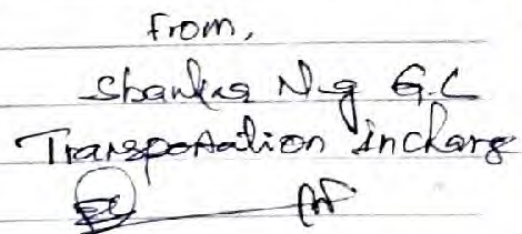 From,
Shankar Nag G.C
Transportation Incharge